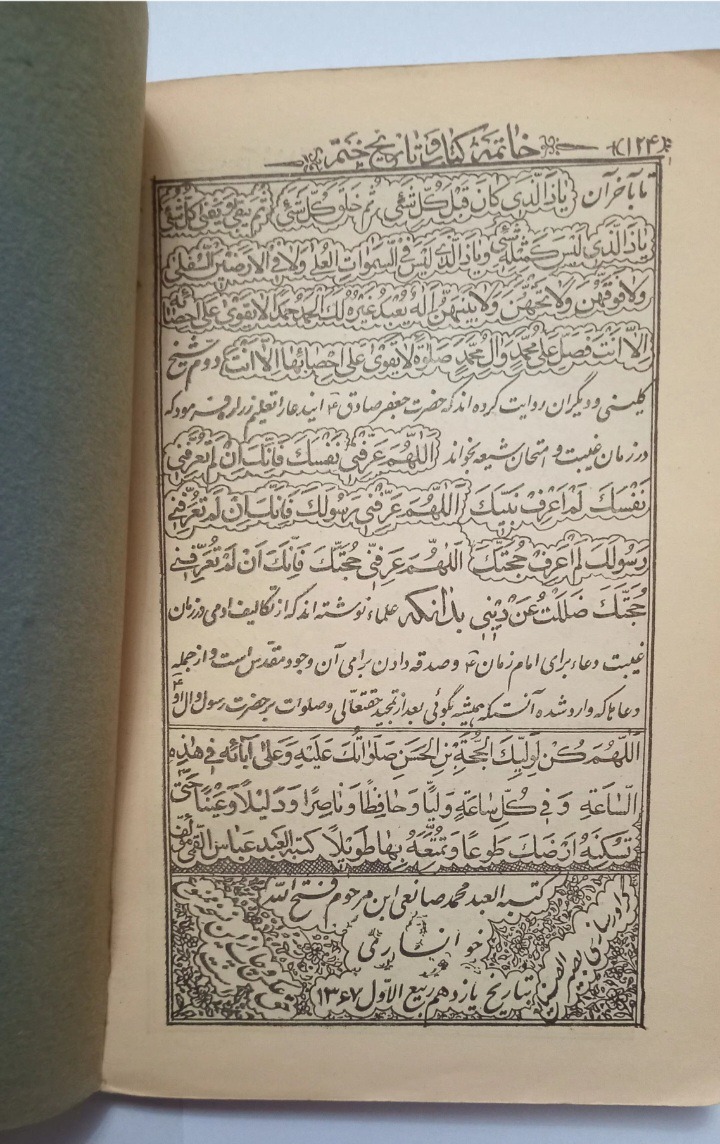 خاتمهٔ کتاب و تاریخ ختم ﴿۱۲۴﴾
تا بآخر آن یا ذَا الَّذی کانَ قَبْلَ کُلِّ شَیْءٍ ثُمَّ خَلَقَ کُلَّ شَیْءٍ ثُمَّ یَبْقی وَ یَفْنی کُلُّ شَیْءٍ
یا ذَا الَّذی لَیْسَ کَمِثْلِهِ شَیْءٌ وَ یا ذَا الَّذی لَیْسَ فِی السَّمواتِ الْعُلی وَلا فِی الْاَرَضینَ السُّفْلی
وَلا فَوْقَهُنَّ وَلا تَحْتَهُنَّ وَلا بَیْنَهُنَّ اِلهٌ یُعْبَدُ غَیْرُهُ لَکَ الْحَمْدُ حَمْداً لا یَقْوی عَلی اِحْصائِهِ
اِلّا اَنْتَ فَصَلِّ عَلی مُحَمَّدٍ وَ الِ مُحَمَّدٍ صَلوةً لا یَقْوی عَلی اِحْصائِها اِلّا اَنْتَ دوم شیخ
کلینی و دیگران روایت کرده اند که حضرت جعفر صادق ع این دعا را تعلیم زراره فرمود که
در زمان غیبت و امتحان شیعه بخواند اَللّهُمَّ عَرِّفْنی نَفْسَکَ فَاِنَّکَ اِنْ لَمْ تُعَرِّفْنی
نَفْسَکَ لَمْ اَعْرِفْ نَبِیَّکَ اَللّهُمَّ عَرِّفْنی رَسُولَکَ فَاِنَّکَ اِنْ لَمْ تُعَرِّفْنی
رَسُولَکَ لَمْ اَعْرِفْ حُجَّتَکَ اَللّهُمَّ عَرِّفْنی حُجَّتَکَ فَاِنَّکَ اِنْ لَمْ تُعَرِّفْنی
حُجَّتَکَ ضَلَلْتُ عَنْ دینی بدانکه علماء نوشته اند که از تکالیف ادمی در زمان
غیبت دعاء برای امام زمان ع و صدقه دادن برای آن وجود مقدس است و از جمله
دعاها که وارد شده آنست که همیشه بگوئی بعد از تمجید حقتعالی و صلوات بر حضرت رسول و ال او ع
اَللّهُمَّ کُنْ لِوَلِیِّکَ الْحُجَّةِ بْنِ الْحَسَنِ صَلَواتُکَ عَلَیْهِ وَ عَلی آبائِهِ فی هذِهِ
السّاعَةِ وَ فی کُلِّ ساعَةٍ وَلِیّاً وَ حافِظاً وَ ناصِراً وَ دَلیلاً وَ عَیْناً حَتّی
تُسْکِنَهُ اَرْضَکَ طَوْعاً وَ تُمَتِّعَهُ بِها طَویلاً کتبه العبد عباس القمی مؤلف
کتبه العبد محمد صانعی ابن مرحوم فتح الله
خوانساری
بتاریخ یازدهم ربیع الاول ۱۳۶۷